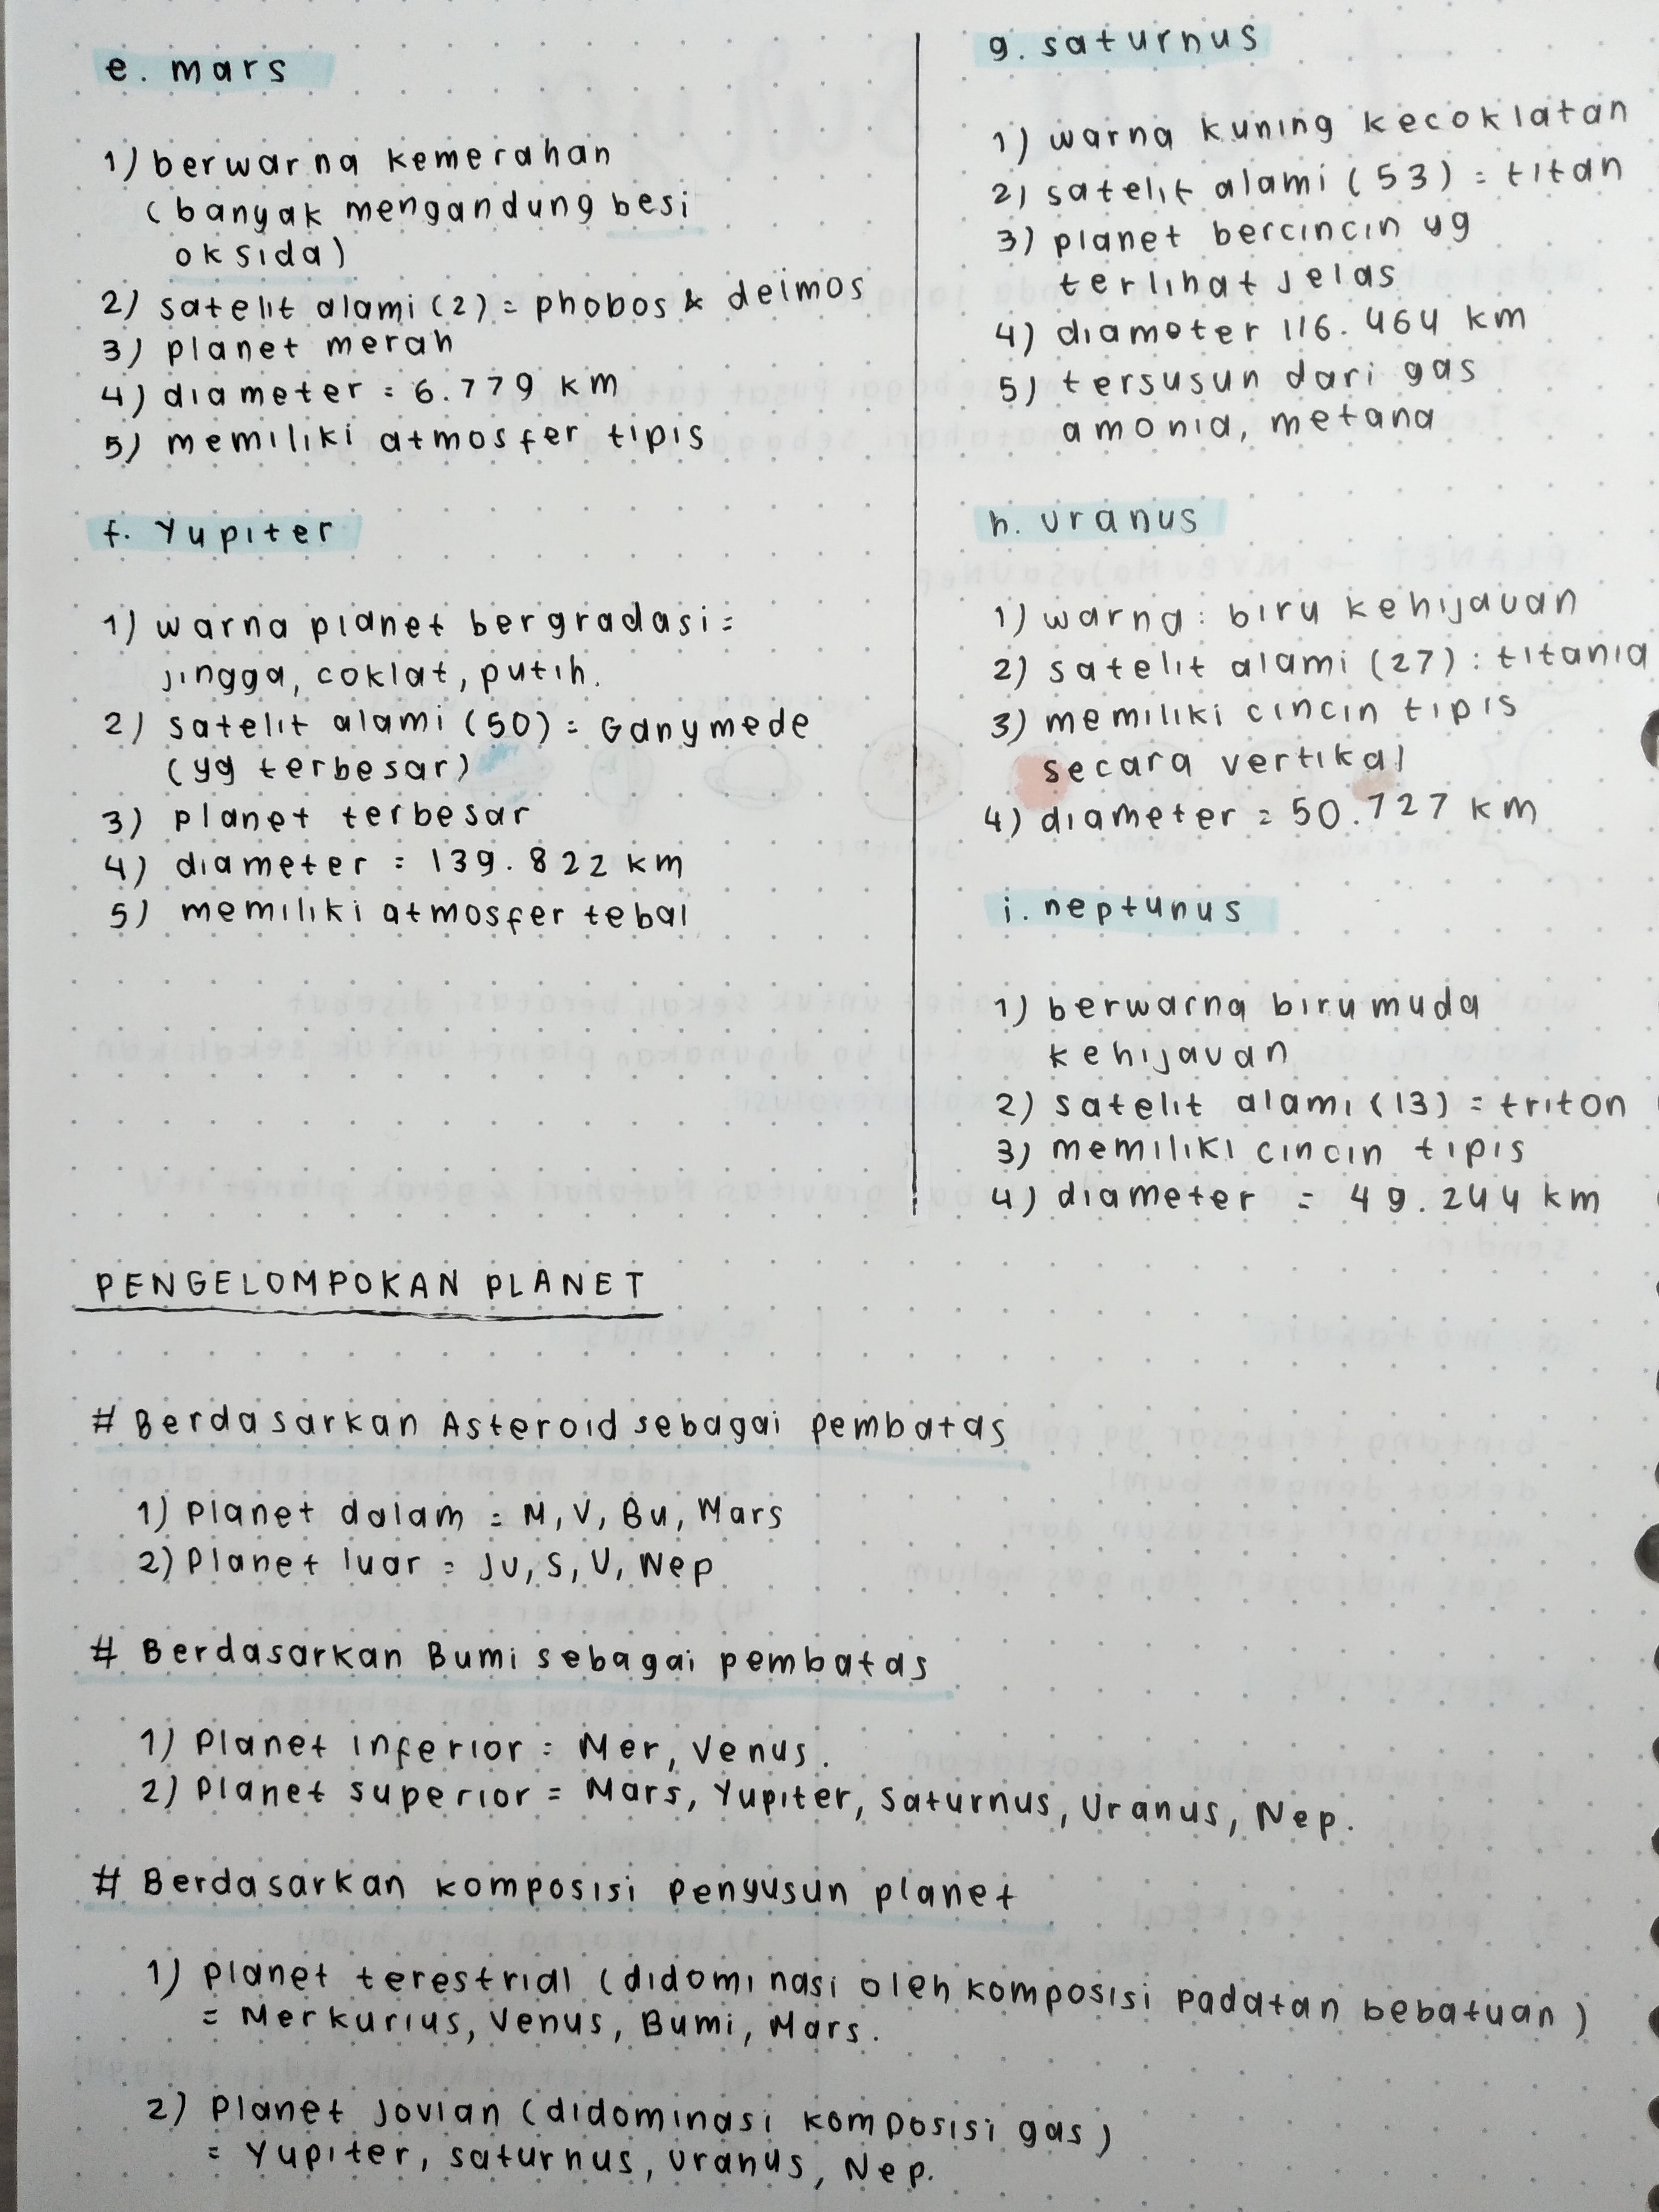 e. mars
1) berwarna kemerahan
(banyak mengandung besi
oksida)
2) satelit alami (2) = phobos & deimos
3) planet merah
4) diameter = 6.779 km
5) memiliki atmosfer tipis
f. Yupiter
1) warna planet bergradasi =
jingga, coklat, putih.
2) satelit alami (50) = Ganymede
(yg terbesar)
3) planet terbesar
4) diameter = 139.822 km
5) memiliki atmosfer tebal
g. saturnus
1) warna kuning kecoklatan
2) satelit alami (53) = titan
3) planet bercincin yg
terlihat jelas
4) diameter 116.464 km
5) tersusun dari gas
amonia, metana
h. uranus
1) warna : biru kehijauan
2) satelit alami (27) : titania
3) memiliki cincin tipis
secara vertikal
4) diameter = 50.727 km
i. neptunus
1) berwarna biru muda
kehijauan
2) satelit alami (13) = triton
3) memiliki cincin tipis
4) diameter = 49.244 km
PENGELOMPOKAN PLANET
# Berdasarkan Asteroid sebagai pembatas
1) Planet dalam = M, V, Bu, Mars
2) Planet luar = Ju, S, U, Nep
# Berdasarkan Bumi sebagai pembatas
1) Planet inferior = Mer, Venus.
2) Planet superior = Mars, Yupiter, Saturnus, Uranus, Nep.
# Berdasarkan komposisi penyusun planet
1) planet terestrial (didominasi oleh komposisi padatan bebatuan)
= Merkurius, Venus, Bumi, Mars.
2) Planet Jovian (didominasi komposisi gas)
= Yupiter, saturnus, uranus, Nep.